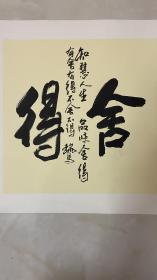 舍得
智慧人生 品味舍得
有舍有得不舍不得